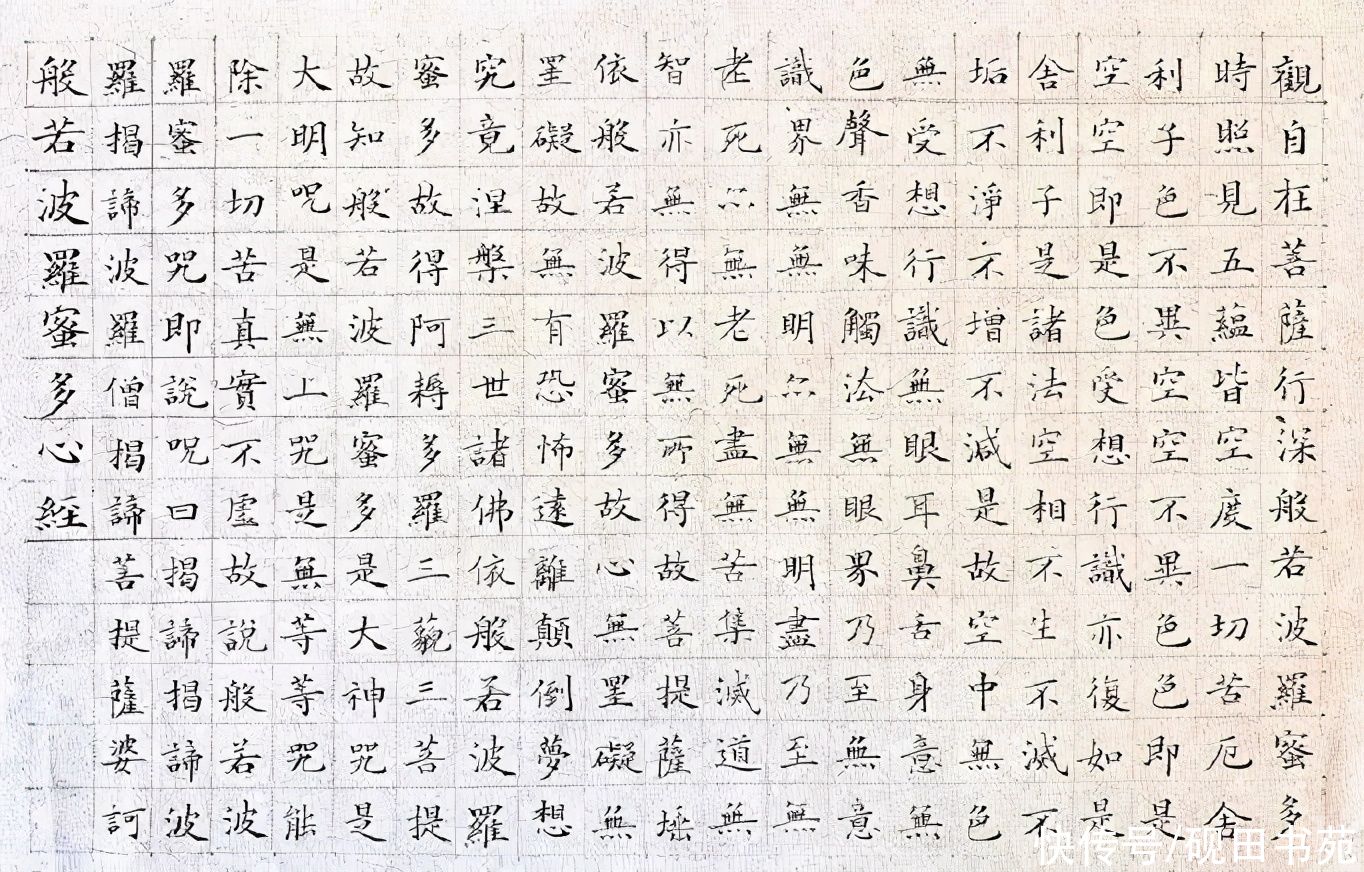 觀自在菩薩行深般若波羅蜜多
時照見五蘊皆空度一切苦厄舍
利子色不異空空不異色色即是
空空即是色受想行識亦復如是
舍利子是諸法空相不生不滅不
垢不淨不增不減是故空中無色
無受想行識無眼耳鼻舌身意無
色聲香味觸法無眼界乃至無意
識界無無明亦無無明盡乃至無
老死亦無老死盡無苦集滅道無
智亦無得以無所得故菩提薩埵
依般若波羅蜜多故心無罣礙無
罣礙故無有恐怖遠離顛倒夢想
究竟涅槃三世諸佛依般若波羅
蜜多故得阿耨多羅三藐三菩提
故知般若波羅蜜多是大神咒是
大明咒是無上咒是無等等咒能
除一切苦真實不虛故說般若波
羅蜜多咒即說咒曰揭諦揭諦波
羅揭諦波羅僧揭諦菩提薩婆訶
般若波羅蜜多心經
快传号/砚田书苑